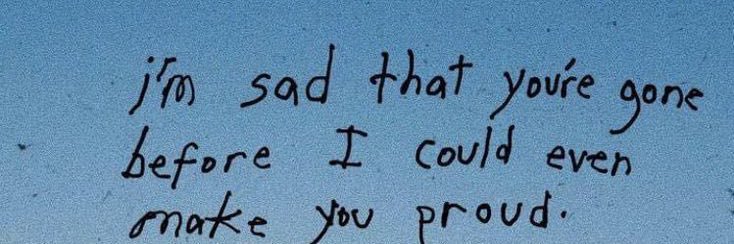 i'm sad that you're gone
before I could even
make you proud.